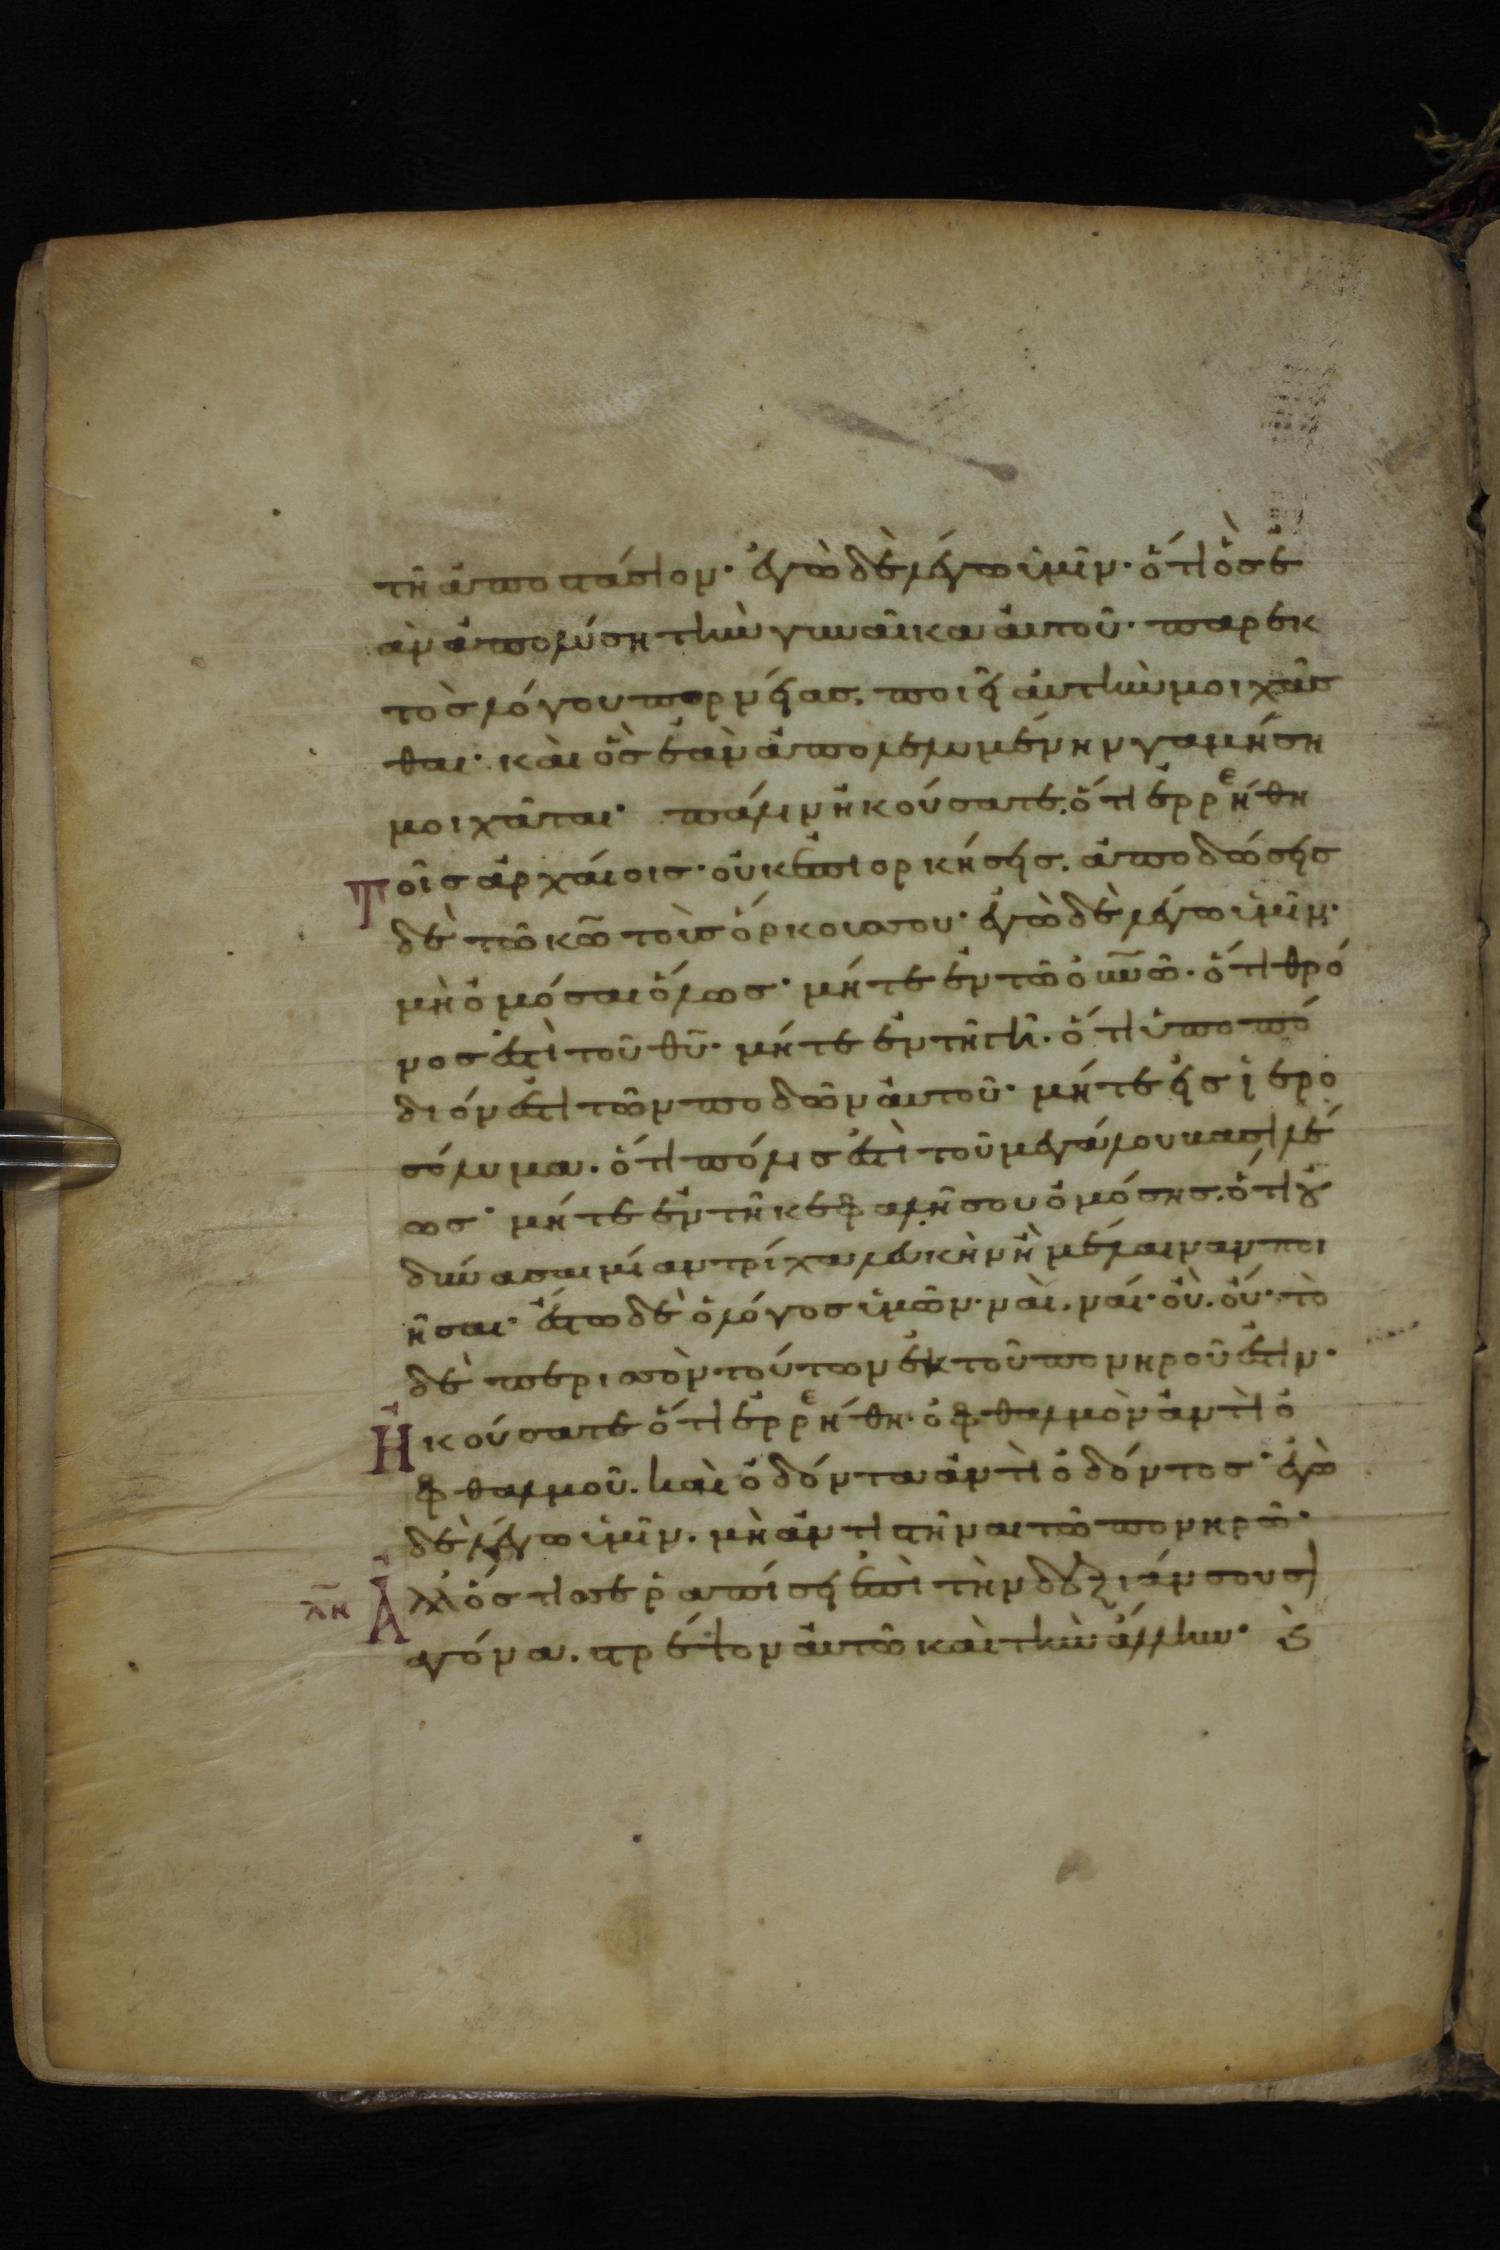 τῆ ἀποστάσιον· ἐγὼ δὲ λέγω ὑμῖν· ὅτι ὃς ἐ
ὰν ἀπολύση τὴν γυναῖκα αὐτοῦ· παρεκ
τὸς λόγου πορνείας, ποιεῖ αὐτὴν μοιχᾶσ
θαι· καὶ ὃς ἐὰν ἀπολελυμένην γαμήση
μοιχᾶται· πάλιν ἠκούσατε, ὅτι ἐρρεήθη
Τοῖς ἀρχαίοις· οὐκ ἐπιορκήσεις. ἀποδώσεις
δὲ τῶ κω̅ τοὺς ὅρκους σου· ἐγὼ δὲ λέγω ὑμῖν·
μὴ ὀμόσαι ὅλως· μήτε ἐν τῶ οὐνω̅. ὅτι θρό
νος ἐστὶ τοῦ θυ̅· μήτε ἐν τῆ γῆ. ὅτι ὑποπό
διόν ἐστι τῶν ποδῶν αὐτοῦ· μήτε εἰς ἱερο
σόλυμα. ὅτι πόλις ἐστὶ τοῦ μεγάλου βασιλέ
ως· μήτε ἐν τῆ κεφαλῆ σου ὀμόσης. ὅτι οὐ
δύνασαι μίαν τρίχα λευκὴν ἢ μέλαιναν ποι
ῆσαι· ἔστω δὲ ὁ λόγος ὑμῶν· ναὶ. ναί· οὒ. οὔ· τὸ
δὲ περισσὸν τούτων ἐκ τοῦ πονηροῦ ἐστιν·
Ἠκούσατε ὅτι ἐρρεήθη· ὀφθαλμὸν ἀντὶ ὀ
φθαλμοῦ. καὶ ὀδόντα ἀντὶ ὀδόντος· ἐγὼ
δὲ λέγω ὑμῖν. μὴ ἀντιστῆναι τῶ πονηρῶ·
λη̅ Ἀλλ' ὅστις σε ῥαπίσει ἐπὶ τὴν δεξιάν σου σι
αγόνα. στρέψον αὐτῶ καὶ τὴν ἄλλην· ϗ